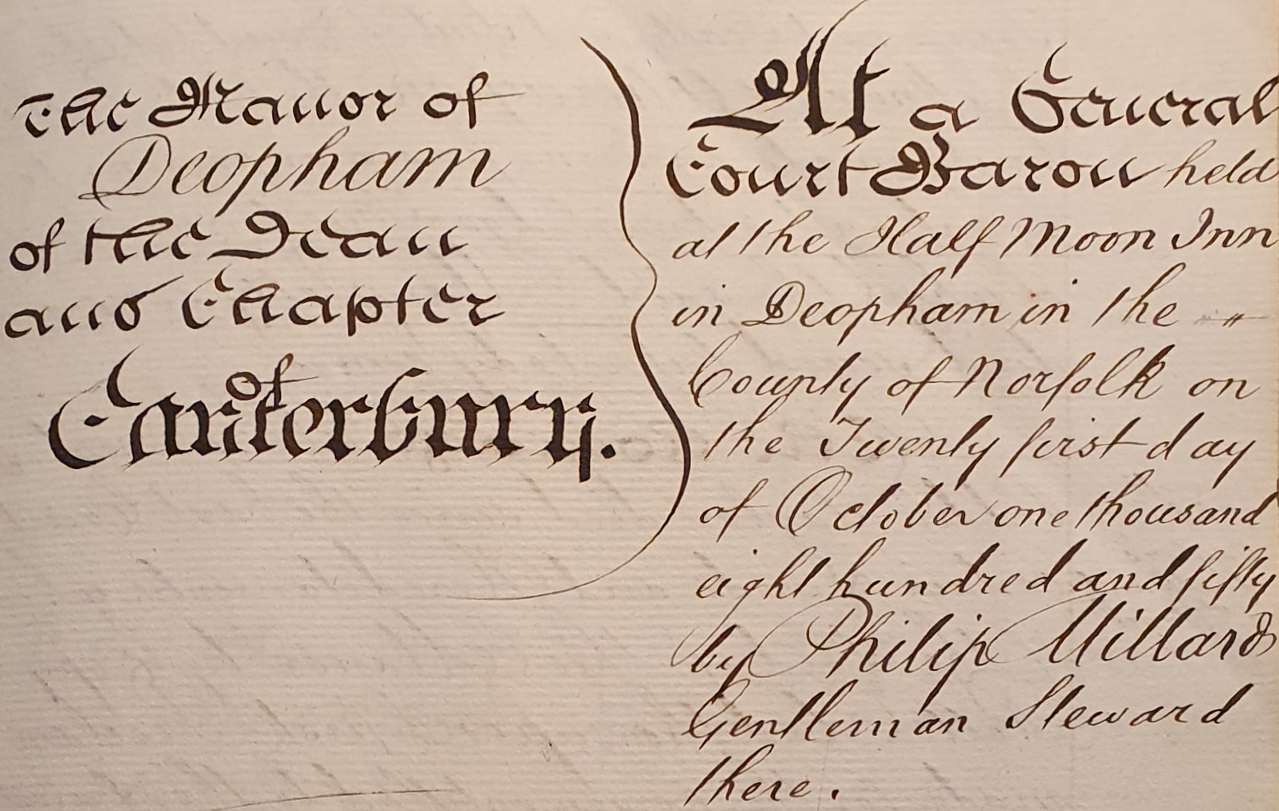 The Manor of
Deopham
of the Dean
and Chapter
of
Canterbury.
At a General
Court Baron held
at the Half Moon Inn
in Deopham in the "
County of Norfolk on
the Twenty first day
of October one thousand
eight hundred and fifty
by Philip Millard
Gentleman Steward
there.